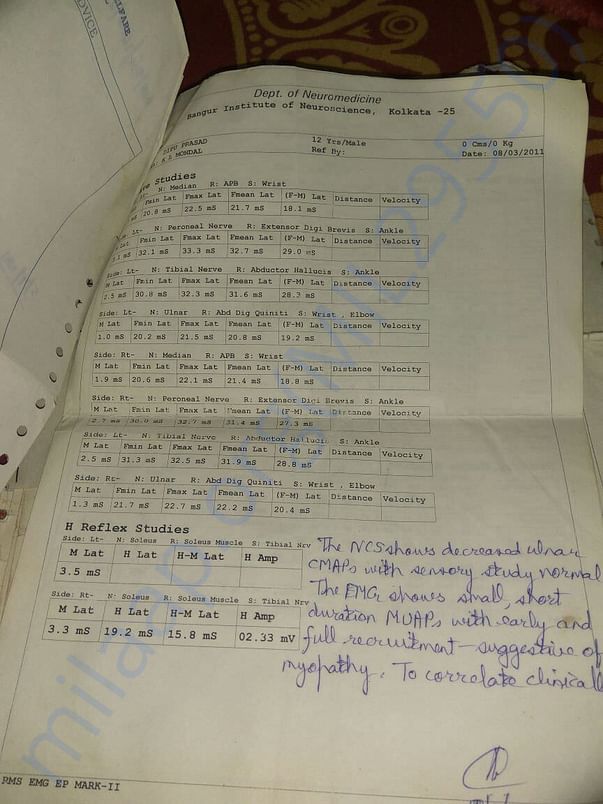 ADVICE
LFARE
Dept. of Neuromedicine
Bangur Institute of Neuroscience, Kolkata -25
DIPU PRASAD 12 Yrs/Male 0 Cms/0 Kg
K L MONDAL Ref By: Date: 08/03/2011
Studies
N: Median R: APB S: Wrist
Lat Fmin Lat Fmax Lat Fmean Lat (F-M) Lat Distance Velocity
mS 20.8 mS 22.5 mS 21.7 mS 18.1 mS
Lt- N: Peroneal Nerve R: Extensor Digi Brevis S: Ankle
Lat Fmin Lat Fmax Lat Fmean Lat (F-M) Lat Distance Velocity
mS 32.1 mS 33.3 mS 32.7 mS 29.0 mS
Side: Lt- N: Tibial Nerve R: Abductor Hallucis S: Ankle
M Lat Fmin Lat Fmax Lat Fmean Lat (F-M) Lat Distance Velocity
2.5 mS 30.8 mS 32.3 mS 31.6 mS 28.3 mS
Side: Lt- N: Ulnar R: Abd Dig Quiniti S: Wrist , Elbow
M Lat Fmin Lat Fmax Lat Fmean Lat (F-M) Lat Distance Velocity
1.0 mS 20.2 mS 21.5 mS 20.8 mS 19.2 mS
Side: Rt- N: Median R: APB S: Wrist
M Lat Fmin Lat Fmax Lat Fmean Lat (F-M) Lat Distance Velocity
1.9 mS 20.6 mS 22.1 mS 21.4 mS 18.8 mS
Side: Rt- N: Peroneal Nerve R: Extensor Digi Brevis S: Ankle
M Lat Fmin Lat Fmax Lat Fmean Lat (F-M) Lat Distance Velocity
2.7 mS 30.0 mS 32.7 mS 31.4 mS 27.3 mS
Side: Lt- N: Tibial Nerve R: Abductor Halluci S: Ankle
M Lat Fmin Lat Fmax Lat Fmean Lat (F-M) Lat Distance Velocity
2.5 mS 31.3 mS 32.5 mS 31.9 mS 28.8 mS
Side: Rt- N: Ulnar R: Abd Dig Quiniti S: Wrist , Elbow
M Lat Fmin Lat Fmax Lat Fmean Lat (F-M) Lat Distance Velocity
1.3 mS 21.7 mS 22.7 mS 22.2 mS 20.4 mS
H Reflex Studies
Side: Lt- N: Soleus R: Soleus Muscle S: Tibial Nrv
M Lat H Lat H-M Lat H Amp
3.5 mS
Side: Rt- N: Soleus R: Soleus Muscle S: Tibial Nrv
M Lat H Lat H-M Lat H Amp
3.3 mS 19.2 mS 15.8 mS 02.33 mV
The NCS shows decreased ulnar
CMAPs with sensory study normal
The EMG shows small, short
duration MUAPs with early and
full recruitment - suggestive of
myopathy. To correlate clinicall
RMS EMG EP MARK-II